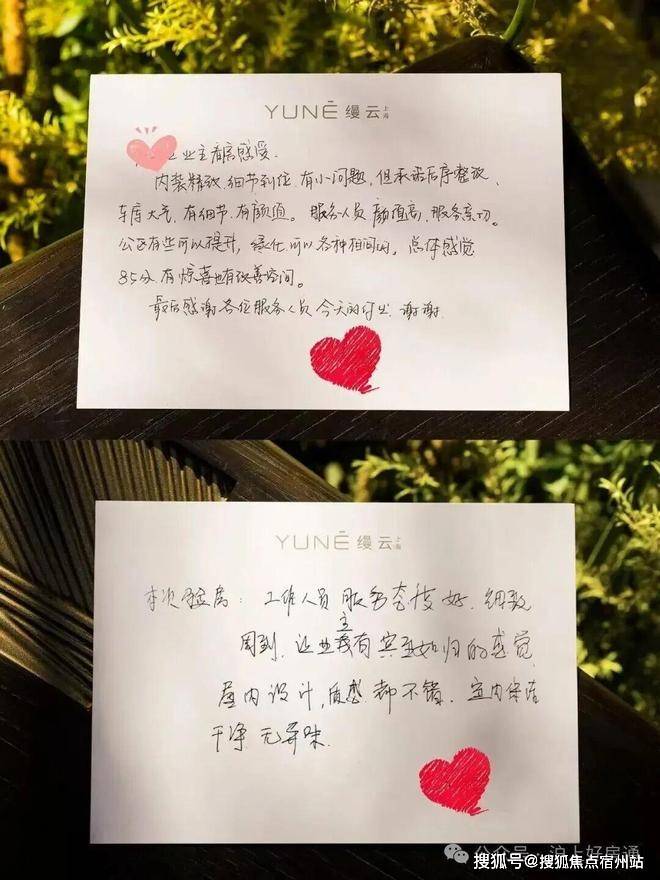 YUNÉ 缦云 上海
业主看房感受.
内装精致.细节到位.有小问题,但承诺后序整改、
车库大气.有细节.有颜值。服务人员颜值高,服务亲切。
公区有些可以提升,绿化可以各种相间的,总体感觉
85分有惊喜也有改善空间。
最后感谢各位服务人员今天的付出 谢谢
YUNÉ 缦云 上海
本次验房:工作人员服务态度好.细致
周到.让业主我有宾至如归的感觉
屋内设计,质感都不错.室内保洁
干净 无异味.
公众号·沪上好房通
搜狐号@搜狐焦点宿州站